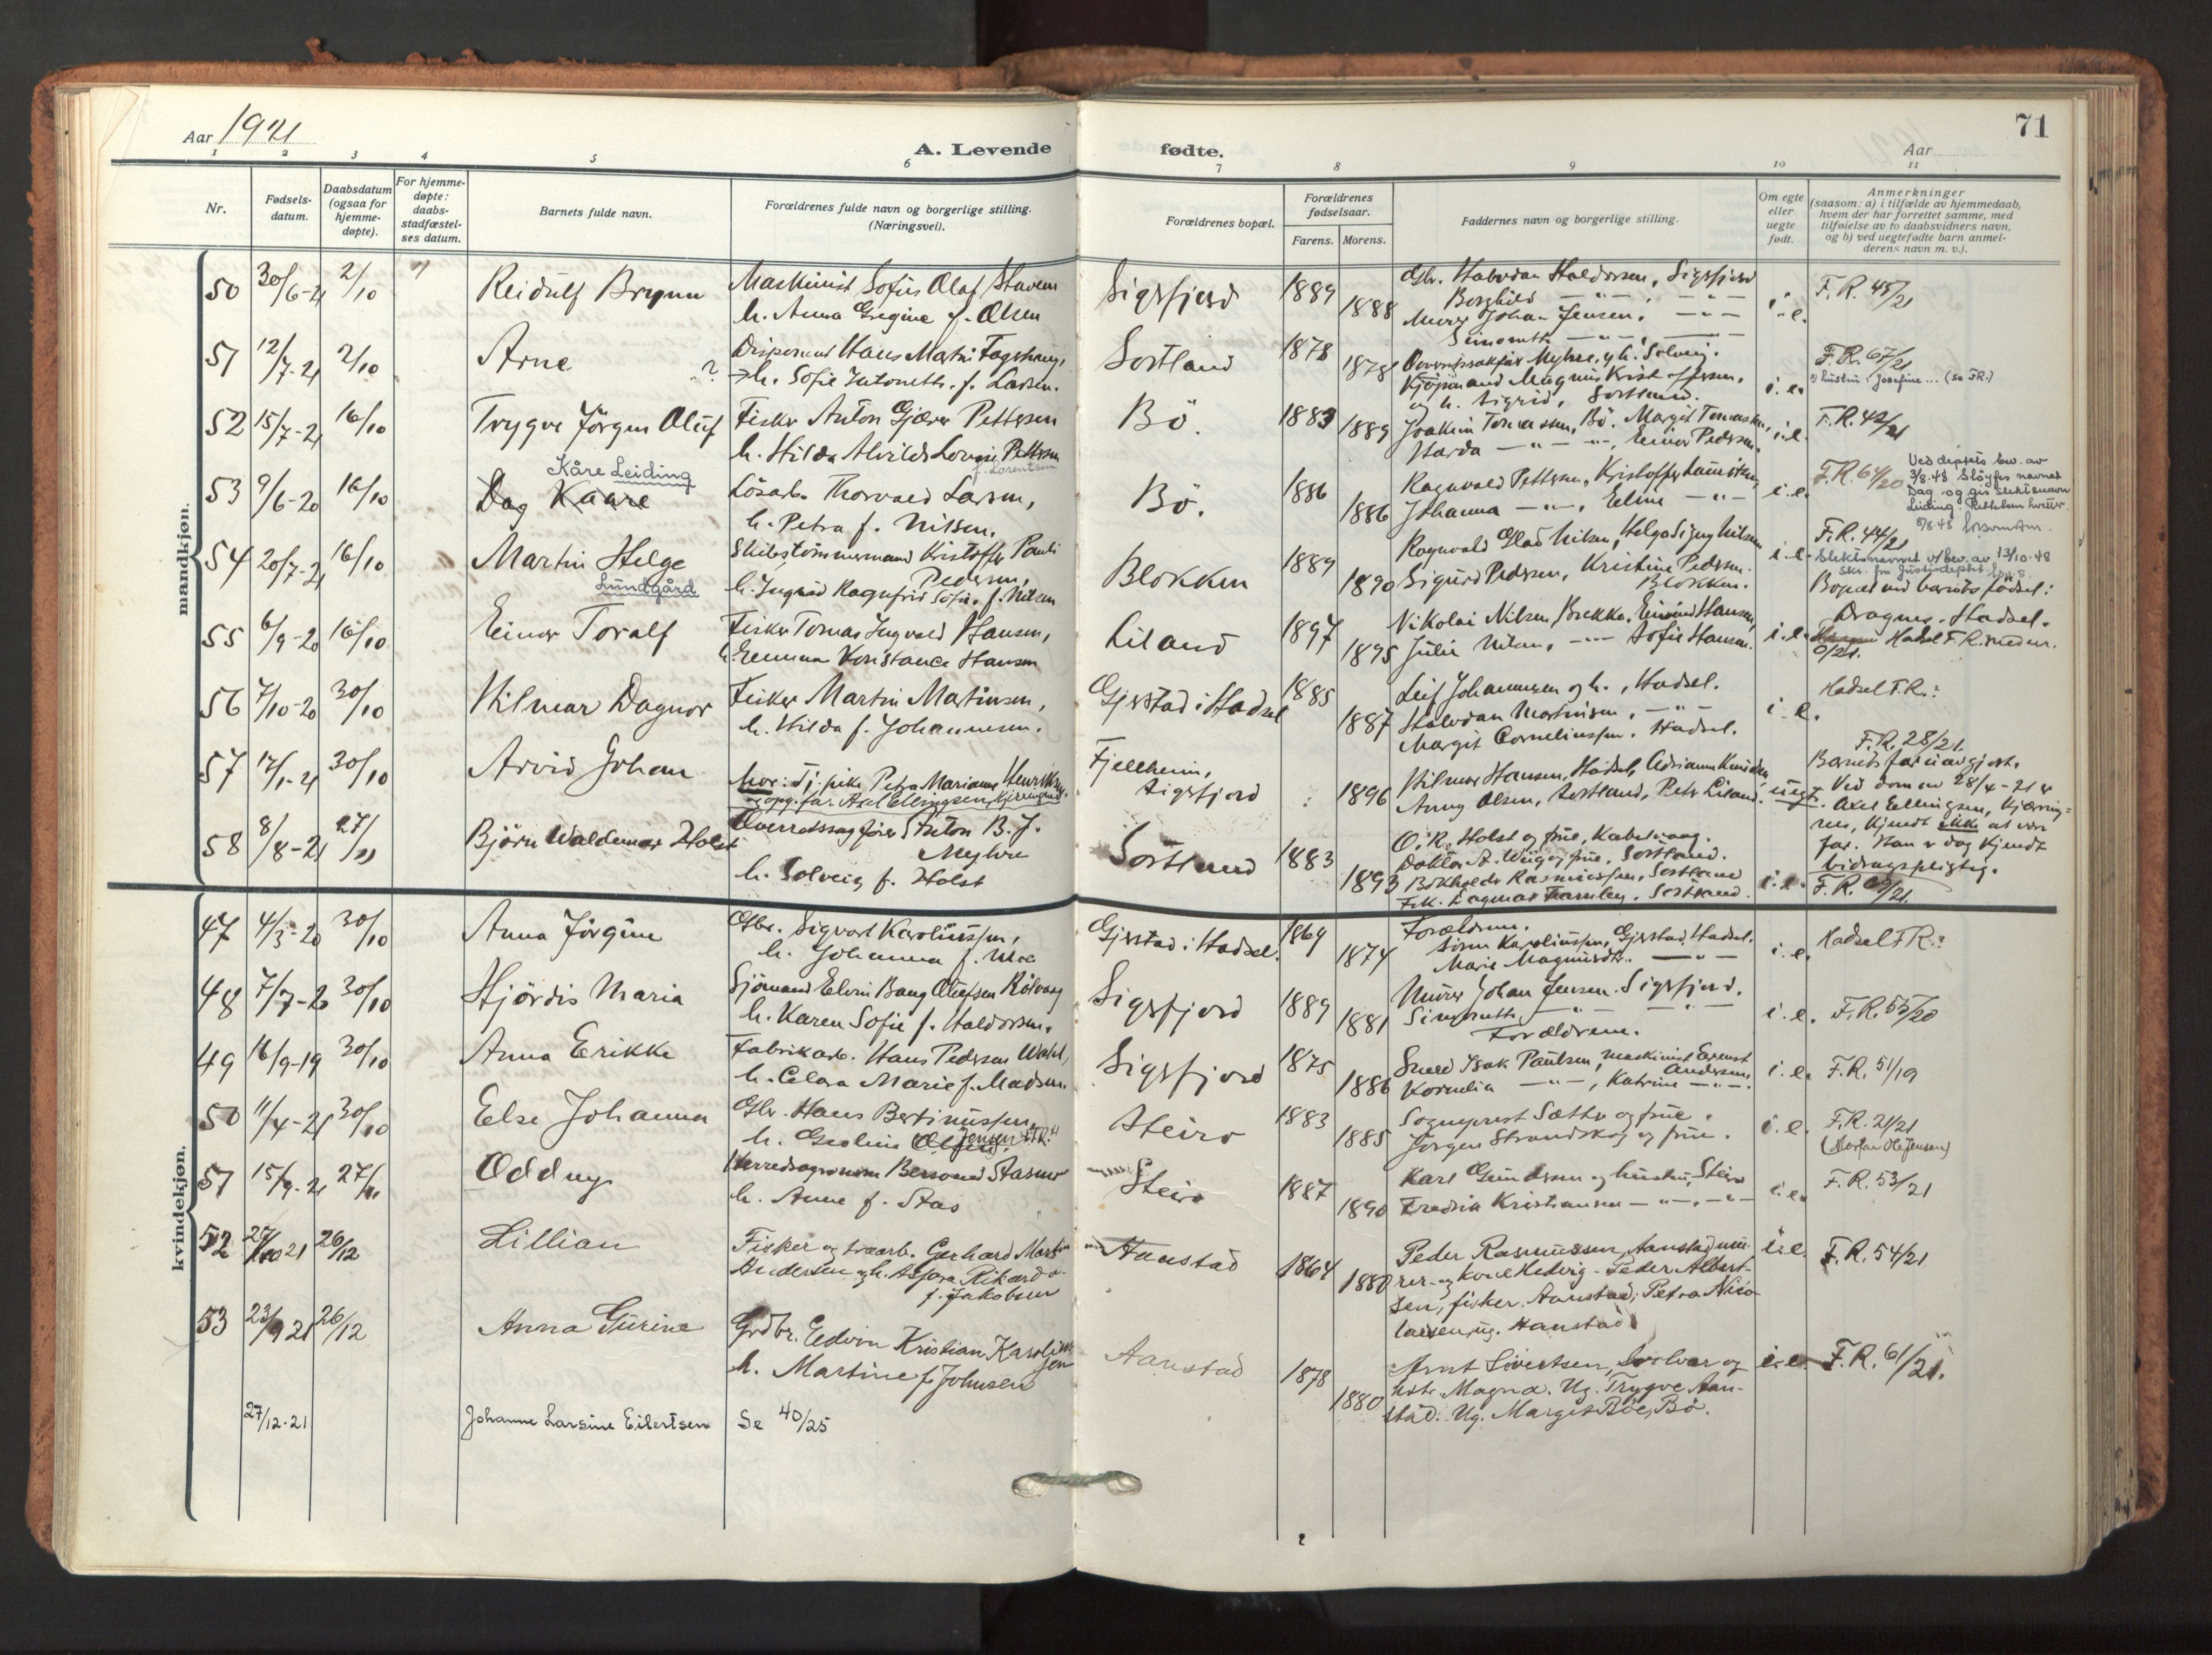 Aar 1921
A. Levende fødte.
71
Aar
1 2 3 4 5 6 7 8 9 10 11
Nr.
Fødsels-
datum.
Daabsdatum
(ogsaa for
hjemme-
døpte).
For hjemme-
døpte:
daabs-
stadfæstel-
ses datum.
Barnets fulde navn.
Forældrenes fulde navn og borgerlige stilling.
(Næringsvei).
Forældrenes bopæl.
Forældrenes
fødselsaar.
Farens. Morens.
Faddernes navn og borgerlige stilling.
Om egte
eller
uegte
født.
Anmerkninger
(saasom: a) i tilfælde av hjemmedaab,
hvem der har forrettet samme, med
tilføielse av to daabsvidners navn,
og b) ved uegtefødte barn anmel-
derens navn m. v.).
mandkjøn.
50 30/6-21 2/10 Reidulf Brynn
Maskinist Sofus Olaf Stavem
h. Anna Gregine f. Olsen
Sigsfjord 1889 1888
Gbr. Halvdan Haldorsen, Sigsfjord
Borghild — " — , — " —
Murer Johan Jensen, — " —
i.e.
F.R. 45/21
51 12/7-21 2/10 Arne
Disponent Hans Martin Fagerhaug,
? → h. Sofie Antonette f. Larsen.
Sortland 1878 1878
Overretssakfør Myhre og h. Solveig.
Kjøpmand Magnus Kristoffersen,
og h. Sigrid, Sortland.
i.e.
F.R. 67/21
hustru: Josefine ... (se FR.)
52 15/7-21 16/10 Trygve Jörgen Oluf
Fisker Anton Gjæver Pettersen
h. Hilda Alvilde Lovise Pettersen
f. Lorentsen
Bö. 1883 1889
Joakim Tomassen, Bö. Margit Tomassen,
Harda — " — " —, Einar Pedersen.
i.e.
F.R. 42/21
53 9/6-20 16/10 Dag Kaare
Kåre Leiding
Lösarb. Thorvald Larsen,
h. Petra f. Nilsen.
Bö. 1886 1886
Ragnvald Pettersen, Kristoffer Lauritsen
Johanna — " —, Eline — " —
i.e.
F.R. 64/20
Ved deptets bev. av
3/8.48 Slöyfes navnet
Dag og gis slektsnavn
Leiding. Rettelsen
5/8.48
54 20/7-21 16/10 Martin Helge
Lundgård
Skibstömmermand Kristoffer Pauli
Pedersen,
h. Ingrid Ragnfrid Sofie f. Nilsen
Blokken 1889 1890
Ragnvald Olad Nilsen, Helga Signy Nilsen
Sigurd Pedersen, Kristine Pedersen.
Blokken.
i.e.
F.R. 44/21
Slektsnavnet v/bev. av 13/10.48
Skr. fra Justisdeptet
55 6/9-20 16/10 Einar Toralf
Fisker Tomas Ingvald Hansen,
h. Emma Konstance Hansen
Liland 1897 1895
Nikolai Nilsen, Brekka, Hansen,
Julie Nilsen, — " — Sofie Hansen.
i.e.
Bopæl ved barnets födsel:
Dragnes, Hadsel.
Hadsel F.R.
56 7/10-20 30/10 Hilmar Dagnor
Fisker Martin Matinsen,
h. Hilda f. Johannesen.
Gjerstad i Hadsel 1885 1887
Leif Johannesen og h., Hadsel.
Halvdan Martinsen, — " —
Margit Corneliussen, Hadsel.
i.e.
Hadsel F.R.?
57 17/1-21 30/10 Arvid Johan
Mor: Tj. pike Petra Marianne Henriksen.
opg. far: Axel Ellingsen, Kjerringnes
Fjellheim,
Sigsfjord 1896
Hilmar Hansen, Hadsel, Adrianna Knudsen,
Anny Olsen, Sortland, Petr Liland.
uegt.
F.R. 28/21.
Barnets far uavgjort.
Ved dom av 28/4-21 er
Axel Ellingsen, Kjerring-
nes, kjendt ikke at være
far. Han er dog kjendt
bidragspligtig.
58 8/8-21 27/11 Björn Waldemar Holst
Overretssagförer Anton B. J.
Myhre
h. Solveig f. Holst
Sortland 1883 1893
O. R. Holst og frue, Kabelvaag.
Doktor A. Wiig og frue, Sortland.
Bokholder Rasmussen, Sortland
Frk. Dagmar Fearnley, Sortland.
i.e.
kvindekjøn.
47 4/3-20 30/10 Anna Jörgine
Gbr. Sigvart Karoliussen,
h. Johanna f. Moe
Gjerstad i Hadsel. 1869 1874
Forældrene.
Sören Karoliussen, Gjerstad, Hadsel.
Marie Magnusdtr. — " —
i.e.
Hadsel FR.?
48 7/7-20 30/10 Hjördis Maria
Sjömand Edvin Bang Olufsen Rölvaag
h. Karen Sofie f. Haldorsen.
Sigsfjord 1889 1881
Murer Johan Jensen. Sigsfjord.
Forældrene.
i.e.
F.R. 55/20
49 16/9-19 30/10 Anna Erikke
Fabrikarb. Hans Pedersen Wahl,
h. Clara Marie f. Madsen
Sigsfjord 1875 1886
Smed Isak Paulsen, maskinist Ernst
Andersen
Kornelia — " —, Katrine — " —.
i.e.
F.R. 51/19
50 11/4-21 30/10 Else Johanna
Gbr. Hans Bertinussen,
h. Geoline Olsen
Jensen "F.R."
Steiro 1883 1885
Sogneprest Sæther og frue.
Jörgen Strandskog og frue.
i.e.
F.R. 21/21
51 15/9-21 27/11 Oddny
Herredsagronom Stasnes
h. Anne f. Stas
Steiro 1887 1890
Karl Gundersen og hustru, Steiro
Fredrik Kristiansen — " — " —
i.e.
F.R. 53/21
52 27/10 21 26/12 Lillian
Fisker og Gerhard Martin
Andersen og h. Asfora Rikarda
f. Jakobsen
Aanstad 1864 1880
Peder Rasmussen, Aanstad mu-
rer og kone Hedvig - Peder Albert-
sen, fisker Aanstad; Petra Nico-
laisen, ug. Aanstad
i.e.
F.R. 54/21
53 23/9 21 26/12 Anna Gurine
Grdbr. Edvin Kristian Karolius
sen
h. Martine f. Johnsen
Aanstad 1878 1880
Arnt Sivertsen, Svolvær og
hstr. Magna. Ug. Trygve Aan-
stad. Ug. Margit Böe, Bö.
i.e.
F.R. 61/21.
27/12.21 Johanne Larsine Eilertsen Se 40/25